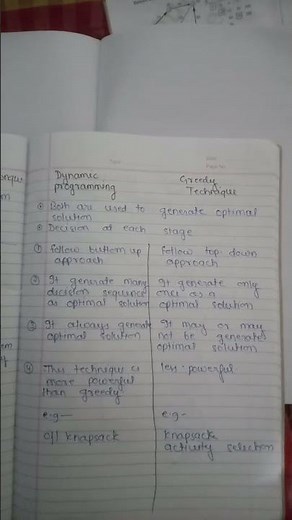 Dynamic programming
Greedy Technique
Both are used to generate optimal solution
Decision at each stage
① Follow buttom up approach
Follow top down approach
② It generate many decision sequence as optimal solution
It generate only once as a optimal solution
③ It always generate optimal solution
It may or may not be generate optimal solution
④ This technique is more powerful than greedy
less powerful
e.g—
e.g-
0/1 Knapsack
Knapsack
activity selection